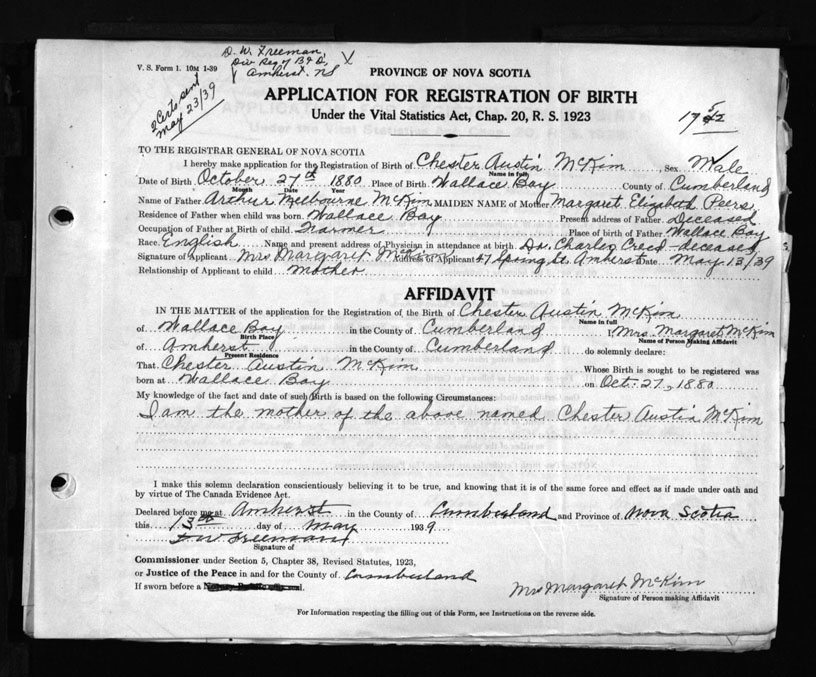 D. W. Freeman,
Div Reg of B & D,
Amherst. NS
V. S. Form 1. 10M 1-39
2 Certs sent
May 23/39
PROVINCE OF NOVA SCOTIA
APPLICATION FOR REGISTRATION OF BIRTH
Under the Vital Statistics Act, Chap. 20, R. S. 1923
TO THE REGISTRAR GENERAL OF NOVA SCOTIA
I hereby make application for the Registration of Birth of Chester Austin McKim, Sex Male
Name in full
Date of Birth October 27th 1880 Place of Birth Wallace Bay County of Cumberland
Month Date Year
Name of Father Arthur Melbourne McKim MAIDEN NAME of Mother Margaret Elizabeth Peers
Residence of Father when child was born. Wallace Bay Present address of Father. Deceased
Occupation of Father at Birth of child. Farmer Place of birth of Father Wallace Bay
Race. English Name and present address of Physician in attendance at birth. Dr. Charles Creed - deceased
Signature of Applicant Mrs Margaret McKim Address of Applicant 47 Spring St. Amherst Date May 13/39
Relationship of Applicant to child Mother
AFFIDAVIT
IN THE MATTER of the application for the Registration of the Birth of Chester Austin McKim
Name in full
of Wallace Bay in the County of Cumberland I, Mrs. Margaret McKim
Birth Place Name of Person Making Affidavit
of Amherst in the County of Cumberland do solemnly declare:
Present Residence
That Chester Austin McKim Whose Birth is sought to be registered was
born at Wallace Bay on Oct. 27, 1880
My knowledge of the fact and date of such Birth is based on the following Circumstances:
I am the mother of the above named Chester Austin McKim
I make this solemn declaration conscientiously believing it to be true, and knowing that it is of the same force and effect as if made under oath and
by virtue of The Canada Evidence Act.
Declared before me at Amherst in the County of Cumberland and Province of Nova Scotia
this 13th day of May 1939
Freeman
Signature of
Commissioner under Section 5, Chapter 38, Revised Statutes, 1923,
or Justice of the Peace in and for the County of Cumberland
If sworn before a
Mrs Margaret McKim
Signature of Person making Affidavit
For Information respecting the filling out of this Form, see Instructions on the reverse side.